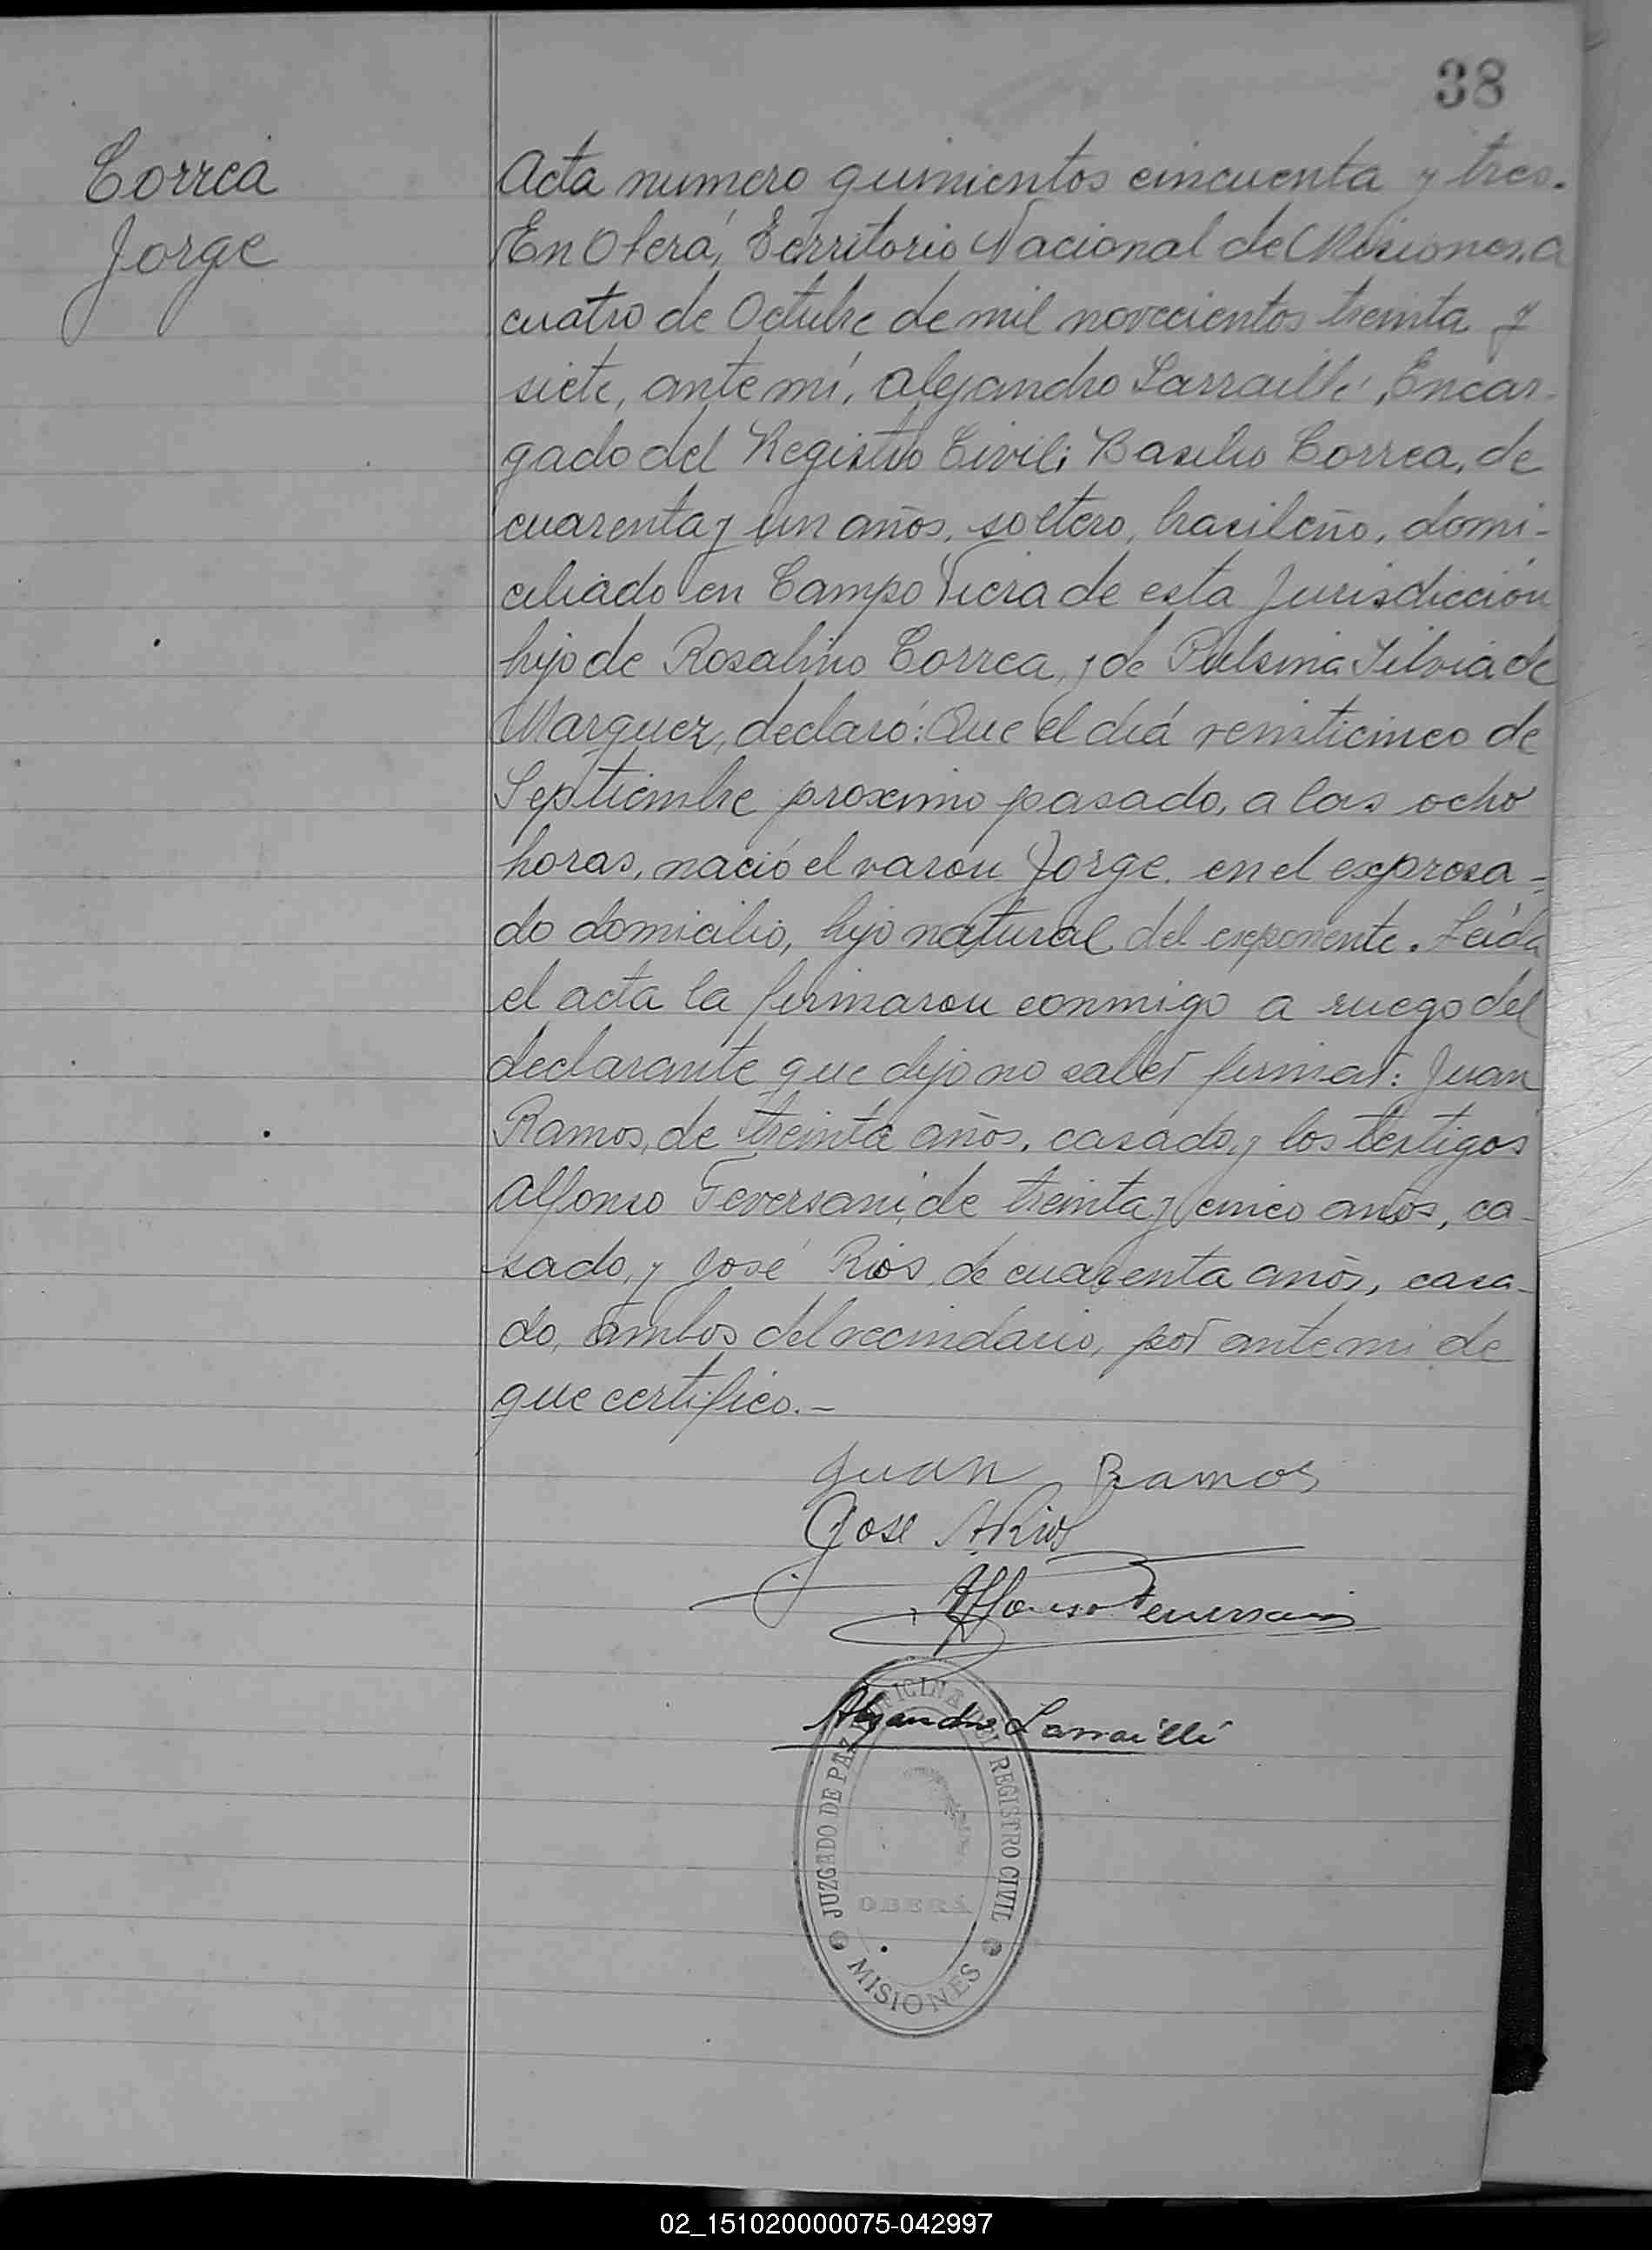 38
Correa
Jorge
Acta numero quinientos cincuenta y tres.
En Oberá, Territorio Nacional de Misiones, a
cuatro de Octubre de mil novecientos treinta y
siete, ante mí, Alejandro Larraillé, Encar-
gado del Registro Civil; Basilio Correa, de
cuarenta y un años, soltero, brasileño, domi-
ciliado en Campo Viera de esta Jurisdicción
hijo de Rosalino Correa, y de Silvia de
Marquez, declaró: Que el día veinticinco de
Septiembre proximo pasado, a las ocho
horas, nació el varon Jorge en el expresa-
do domicilio, hijo natural del exponente. Leída
el acta la firmaron conmigo a ruego del
declarante que dijo no saber firmar: Juan
Ramos, de treinta años, casado, y los testigos
Alfonso Teversani, de treinta y cinco años, ca-
sado, y José Rios, de cuarenta años, casa-
do, ambos del vecindario, por ante mi de
que certifico.-
Juan Ramos
Jose A Rios
Alfonso Teversani
Alejandro Larraillé
JUZGADO DE PAZ OFICINA DEL REGISTRO CIVIL
OBERÁ
MISIONES
02_151020000075-042997